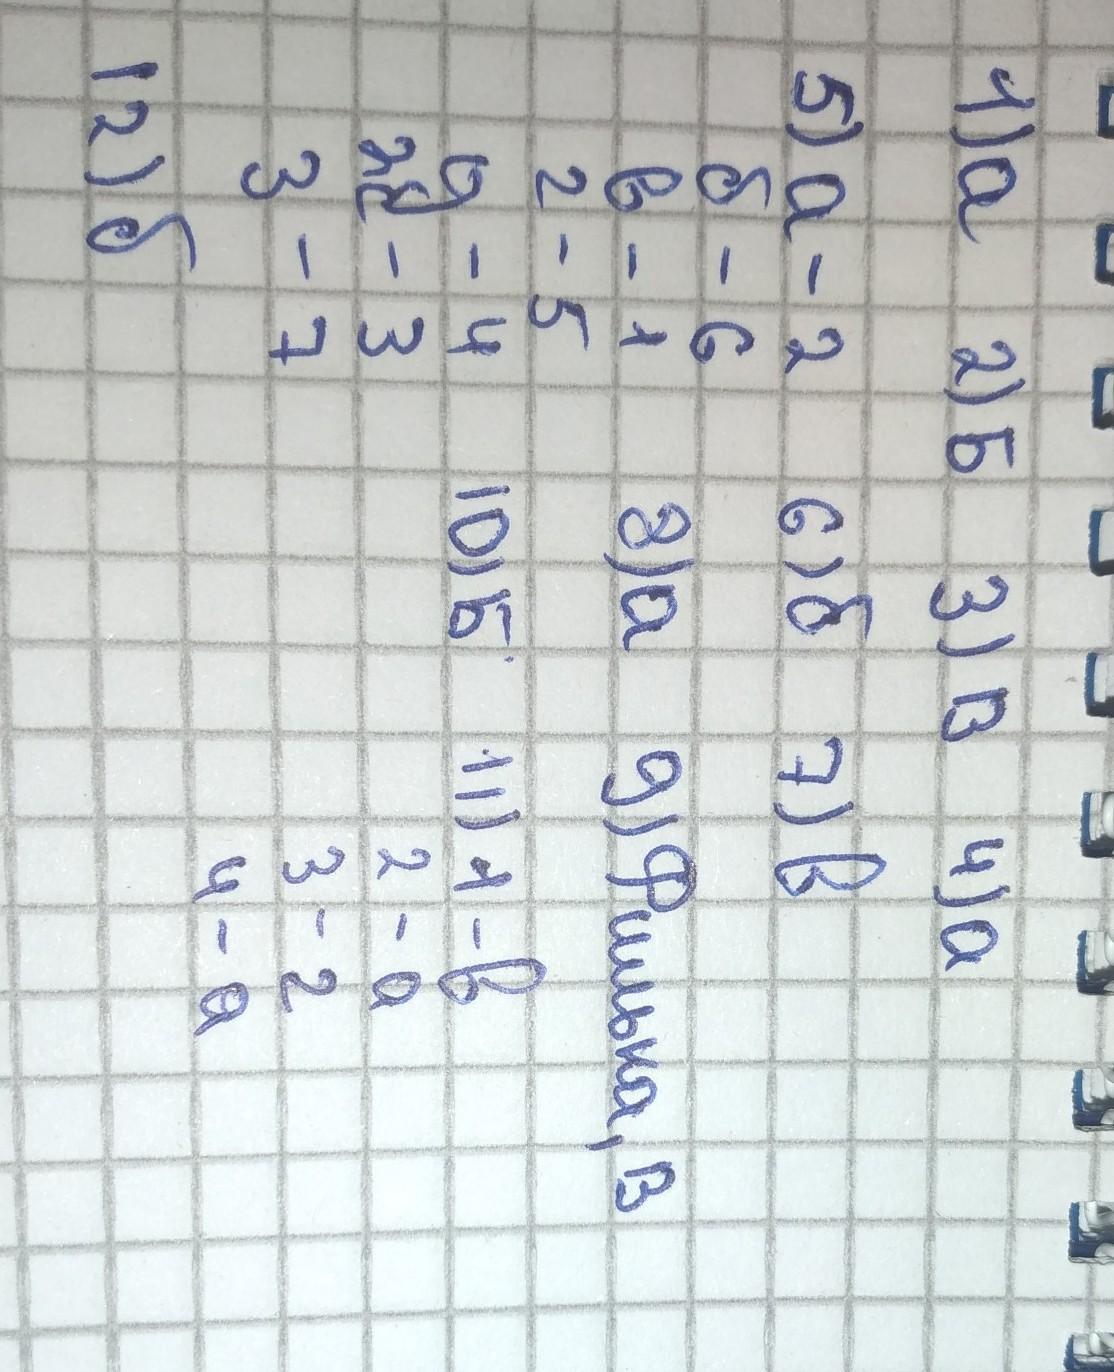 1) а 2) Б 3) В 4) а
5) а - 2 6) б 7) в
б - 6
в - 1 8) а 9) Филька, В
г - 5
д - 4 10) Б 11) 1 - в
е - 3 2 - а
з - 7 3 - г
4 - а
12) б